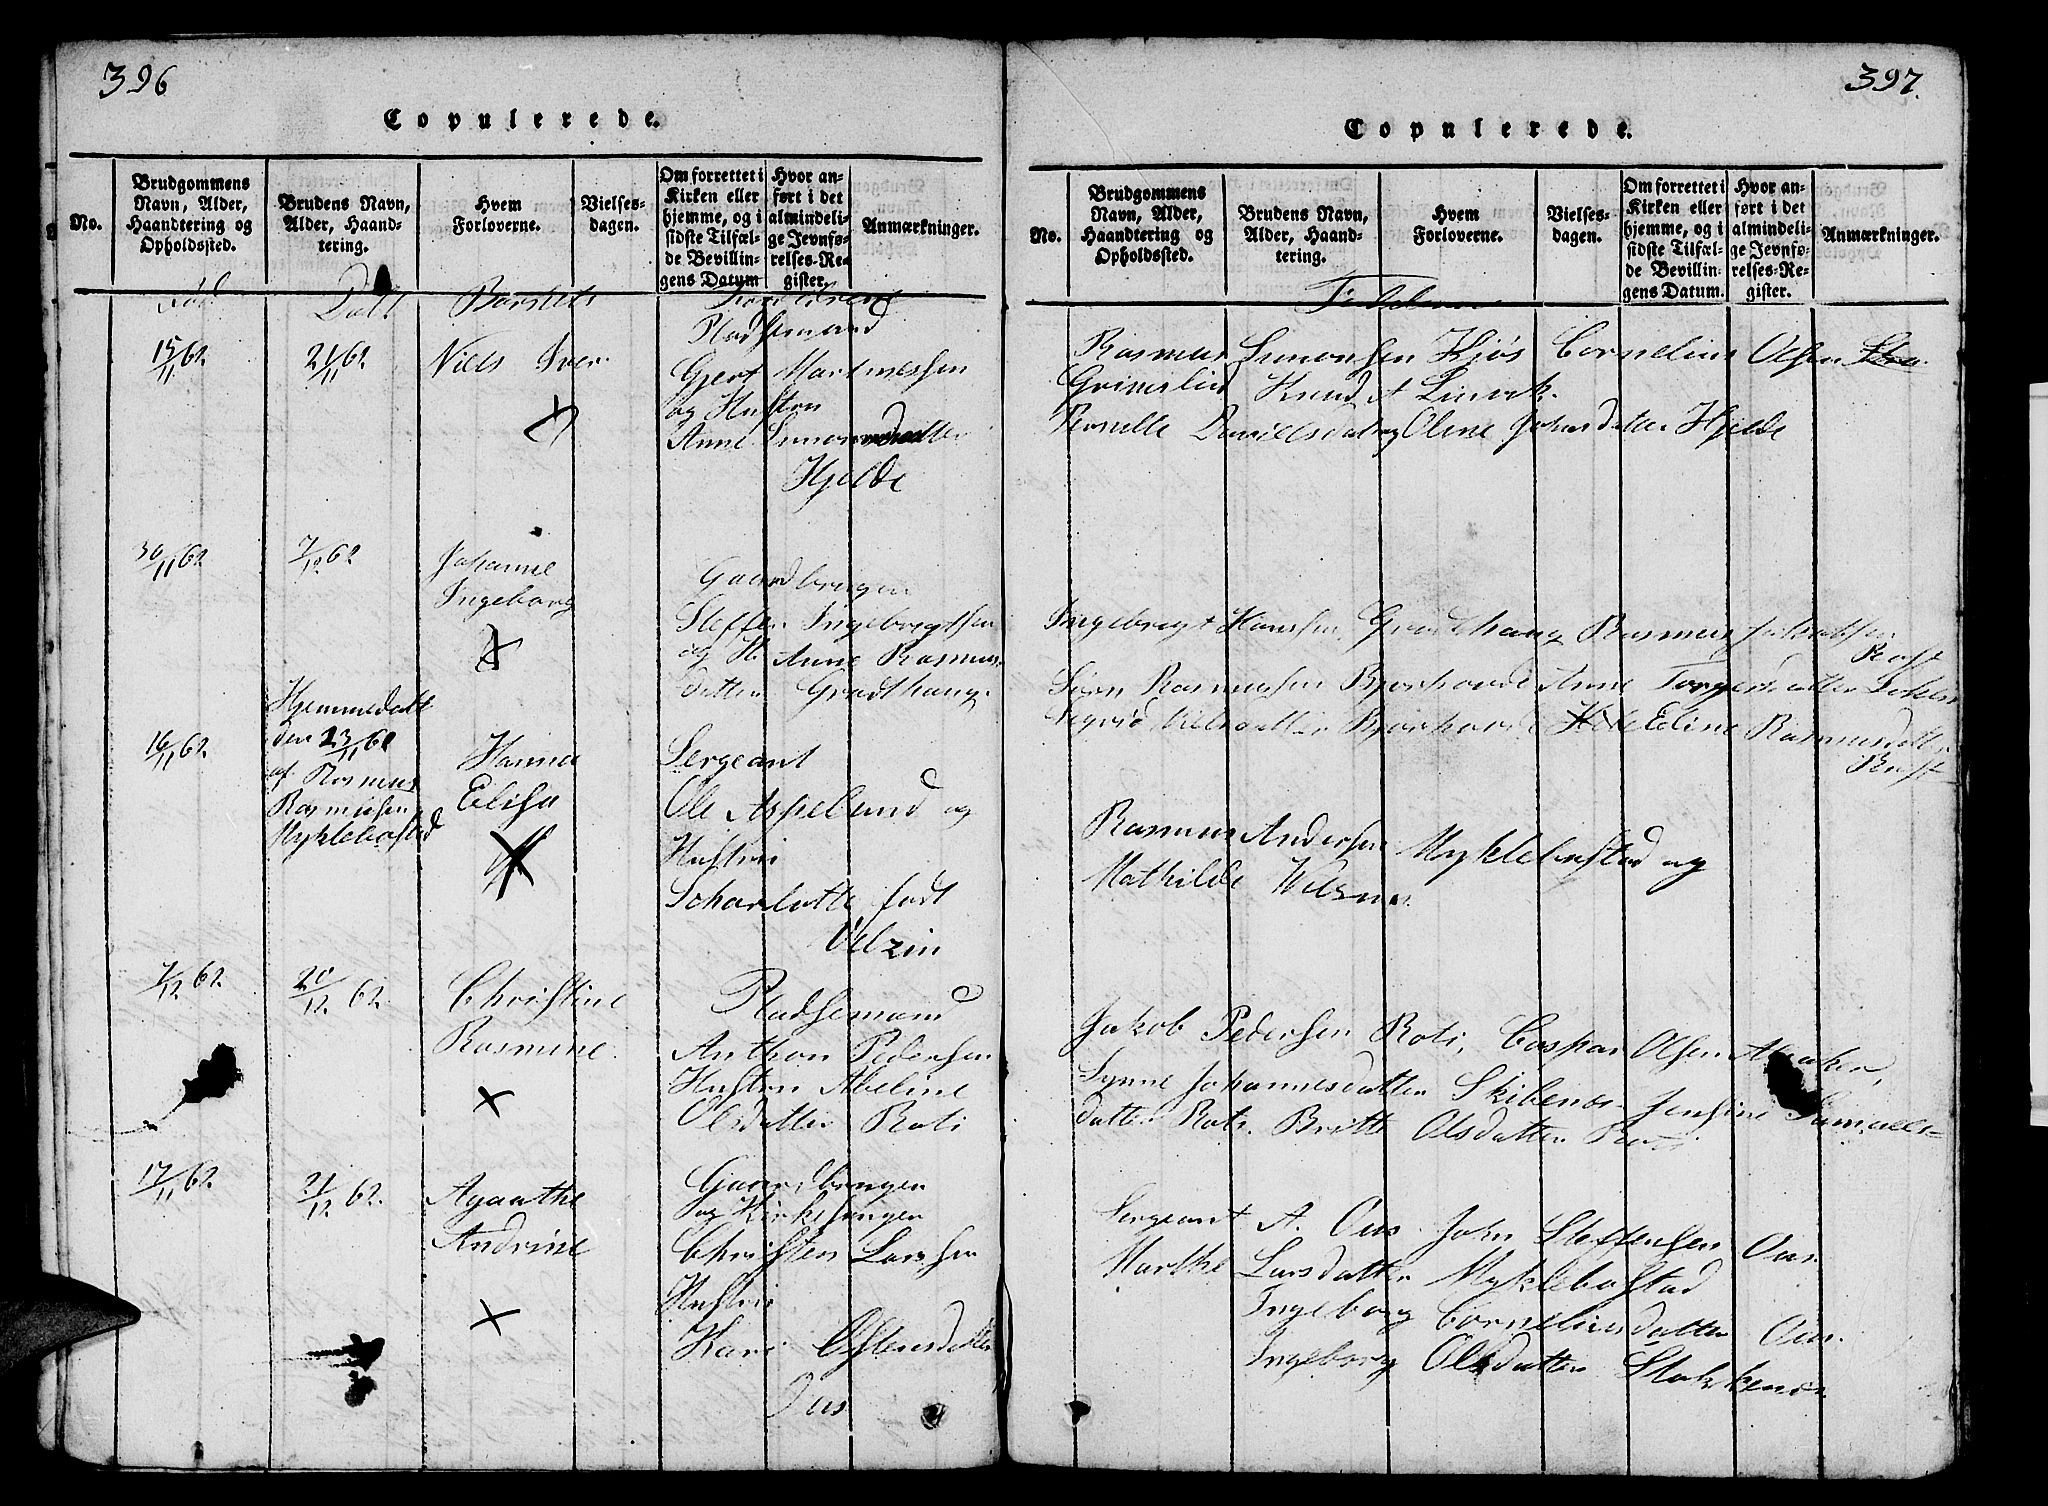 396
Copulerede.
No.
Brudgommens Navn, Alder, Haandtering og Opholdssted.
Brudens Navn, Alder, Haandtering.
Hvem Forloverne.
Vielsesdagen.
Om forrettet i Kirken eller hjemme, og i sidste Tilfælde Bevillingens Datum
Hvor anført i det almindelige Jevnførelses-Register.
Anmærkninger.
Fød Døbt Barnets Forældrene
Pladsemand
15/11 62 21/11 62 Niels Iver Gjert Martinessen
og Hustru
Anne Simonsdatter
Hjelde
30/11 62 7/12 62 Johanne
Ingeborg
Gaardbruger
Steffen Ingebrigtsen
og H. Anne Rasmus-
datter Grodthaug
16/11 62
Hjemmedøbt
den 23/11 61
af Rasmus
Rasmussen
Myklebostad
Hanna
Elisa
Sergeant
Ole Aspelund og
Hustru
Scharlotte født
Velzin
7/12 62 20/12 62 Christine
Rasmine
Pladsemand
Anthon Pedersen
Hustru Abeline
Olsdatter Roti
17/11 62 21/12 62 Agaathe
Andrine
Gaardbruger
og Kirkesanger
Christen Larsen
Hustru
Kari Ostensdatter
Ous
397.
Copulerede.
No.
Brudgommens Navn, Alder, Haandtering og Opholdssted.
Brudens Navn, Alder, Haandtering.
Hvem Forloverne.
Vielsesdagen.
Om forrettet i Kirken eller hjemme, og i sidste Tilfælde Bevillingens Datum.
Hvor anført i det almindelige Jevnførelses-Register.
Anmærkninger.
Fadderne
Rasmus Simonsen Hjøs Cornelius Olsen
Grimslid Knud A Linvik.
Pernille Danielsdat og Oline Johnsdatter Hjelde
Ingebrigt Hanssen, Grodthaug Rasmus Jakobsen
Rust
Sivn Rasmussen Bjørhovde Anne Torgersdatter
Sigrid Nielsdatter Bjørhovde Eline Rasmusdatter
Rust
Rasmus Andersen Myklebustad og
Mathilde Velzin
Jakob Pedersen Roti, Caspar Olsen
Synne Johannesdatter Skibenes Jensine Samuels-
datter Roti. Britt Olsdatter Roti
Sergeant A. Ous John Steffensen Ous.
Marthe Larsdatter Myklebostad
Ingeborg Corneliusdatter Ous.
Ingeborg Olsdatter Stokkenes